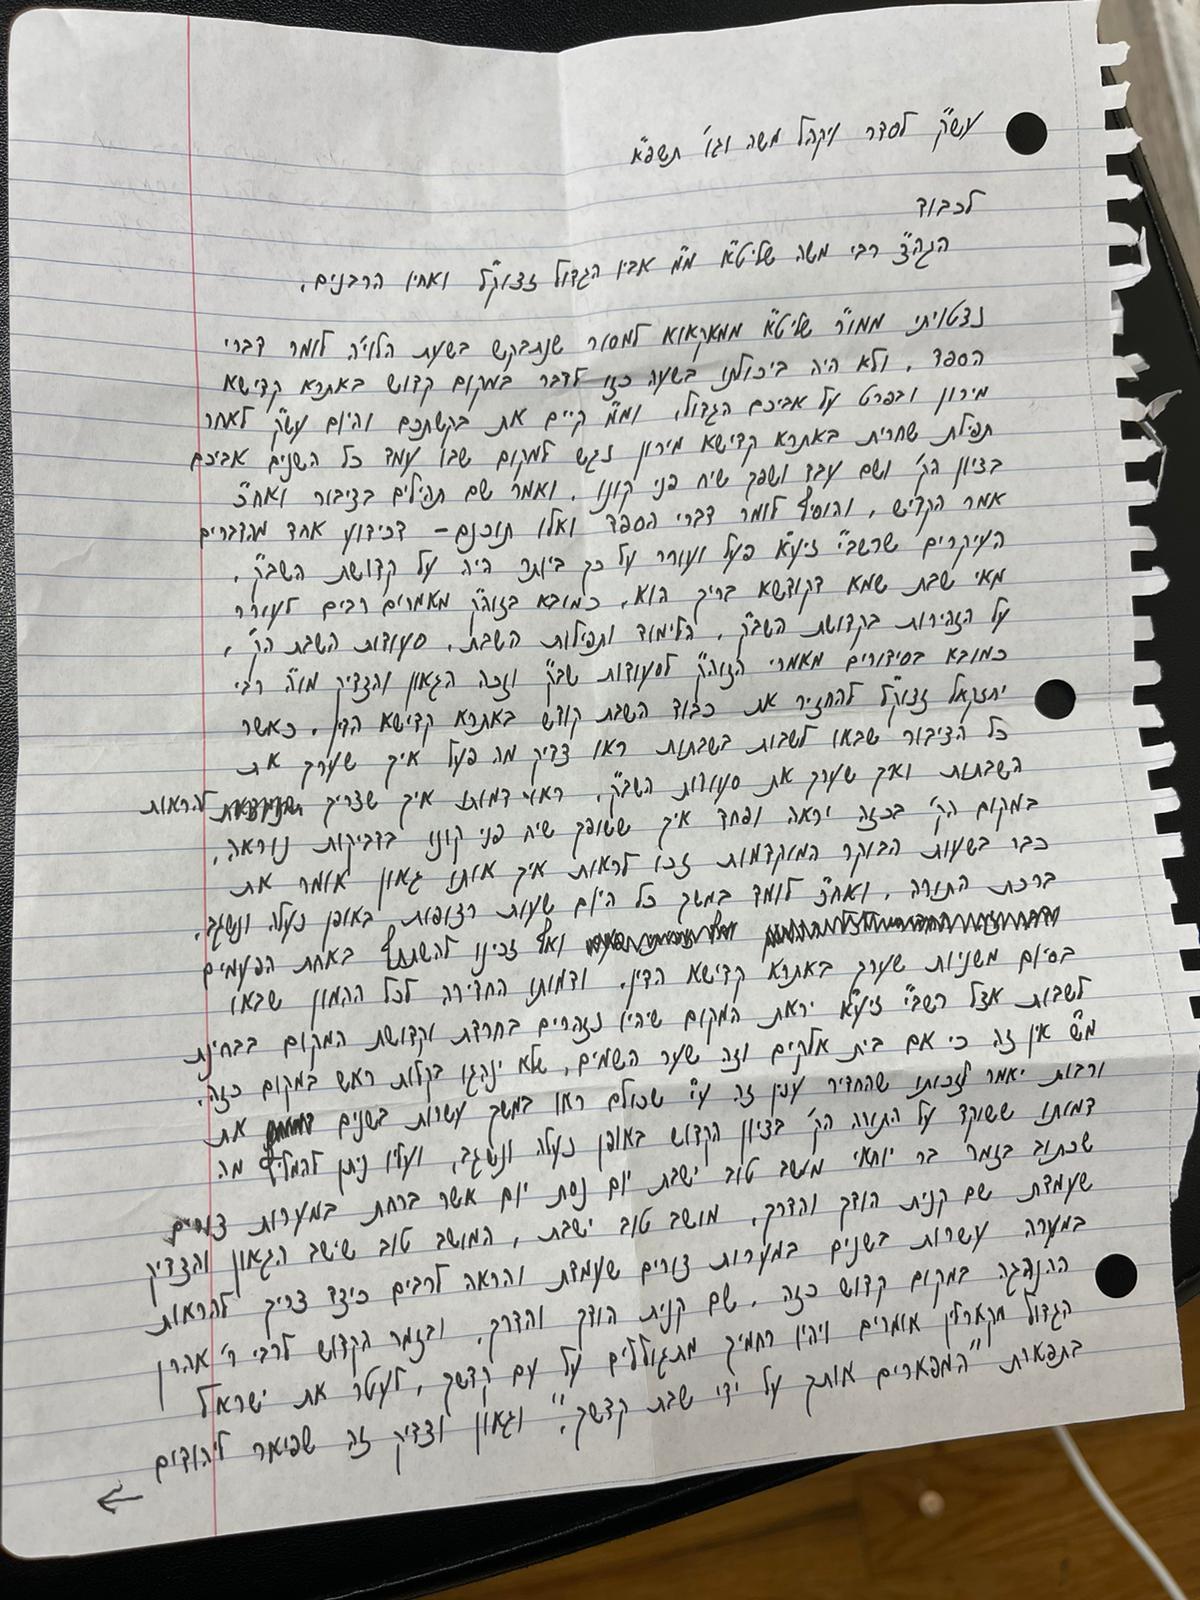 עש"ק לסדר ויקהל משה וגו' תשפ"א
לכבוד
הגה"צ רבי משה שליט"א מ"מ אביו הגדול זצוק"ל ואחיו הרבנים,
נצטויתי ממו"ר שליט"א ממאקאווא למסור שנתבקש בשעת הלוי' לומר דברי
הספד, ולא היה ביכולתו בשעה כזו לדבר במקום קדוש באתרא קדישא
מירון ובפרט על אביכם הגדול, ומ"מ קיים את בקשתכם והיום עש"ק לאחר
תפילת שחרית באתרא קדישא מירון נגש למקום שבו עמד כל השנים אביכם
בציון הק' ושם עבד ושפך שיח פני קונו, ואמר שם תהילים בציבור ואח"כ
אמר הקדיש, והוסיף לומר דברי הספד ואלו תוכנם - דכידוע אחד מהדברים
העיקרים שרשב"י זיע"א פעל ועורר על כך ביותר היה על קדושת השב"ק,
מאי שבת שמא דקודשא בריך הוא, כמובא בזוה"ק מאמרים רבים לעורר
על הזהירות בקדושת השב"ק, הלימוד ותפילות השבת, סעודות השבת הק',
כמובא בסידורים מאמרי הזוה"ק לסעודות שב"ק וזכה הגאון והצדיק מו"ה רבי
יחזקאל זצוק"ל להחזיר את כבוד השבת קודש באתרא קדישא הדין, כאשר
כל הציבור שבאו לשבות בשבתות ראו צדיק מה פעל איך שערך את
השבתות ואיך שערך את סעודות השב"ק, ראו דמותו איך שצריך להראות
במקום הק' בכזה יראה ופחד איך ששופך שיח פני קונו בדביקות נוראה,
כבר בשעות הבוקר המוקדמות זכו לראות איך אותו גאון אומר את
ברכת התורה, ואח"כ לומד במשך כל היום שעות רצופות באופן נעלה ונשגב,
ואף זכינו להשתתף באחת הפעמים
בסיום משניות שערך באתרא קדישא הדין, ודמותו החדירה לכל ההמון שבאו
לשבות אצל רשב"י זיע"א יראת המקום שיהיו נזהרים בחרדת וקדושת המקום בבחינת
מ"ש אין זה כי אם בית אלקים וזה שער השמים, שלא ינהגו בקלות ראש במקום כזה,
ורבות יאמר לזכותו שהחדיר ענין זה ע"י שכולם ראו במשך עשרות בשנים את
דמותו ששוקד על התורה הק' בציון הקדוש באופן נעלה ונשגב, ועליו ניתן להמליץ מה
שכתוב בזמר בר יוחאי מושב טוב ישבת יום נסת יום אשר ברחת במערות צורים
שעמדת שם קנית הודך והדרך, מושב טוב ישבת, המושב טוב שישב הגאון והצדיק
במערה עשרות בשנים במערות צורים שעמדת והראה לרבים כיצד צריך להראות
ההנהגה במקום קדוש כזה, שם קנית הודך והדרך, ובזמר הקדוש לרבי ר' אהרן
הגדול מקארלין אומרים ויהיו רחמיך מתגוללים על עם קדשך, לעטר את ישראל
בתפארת "המפארים אותך על ידי שבת קדשך", וגאון וצדיק זה שפיאר ליהודים
←